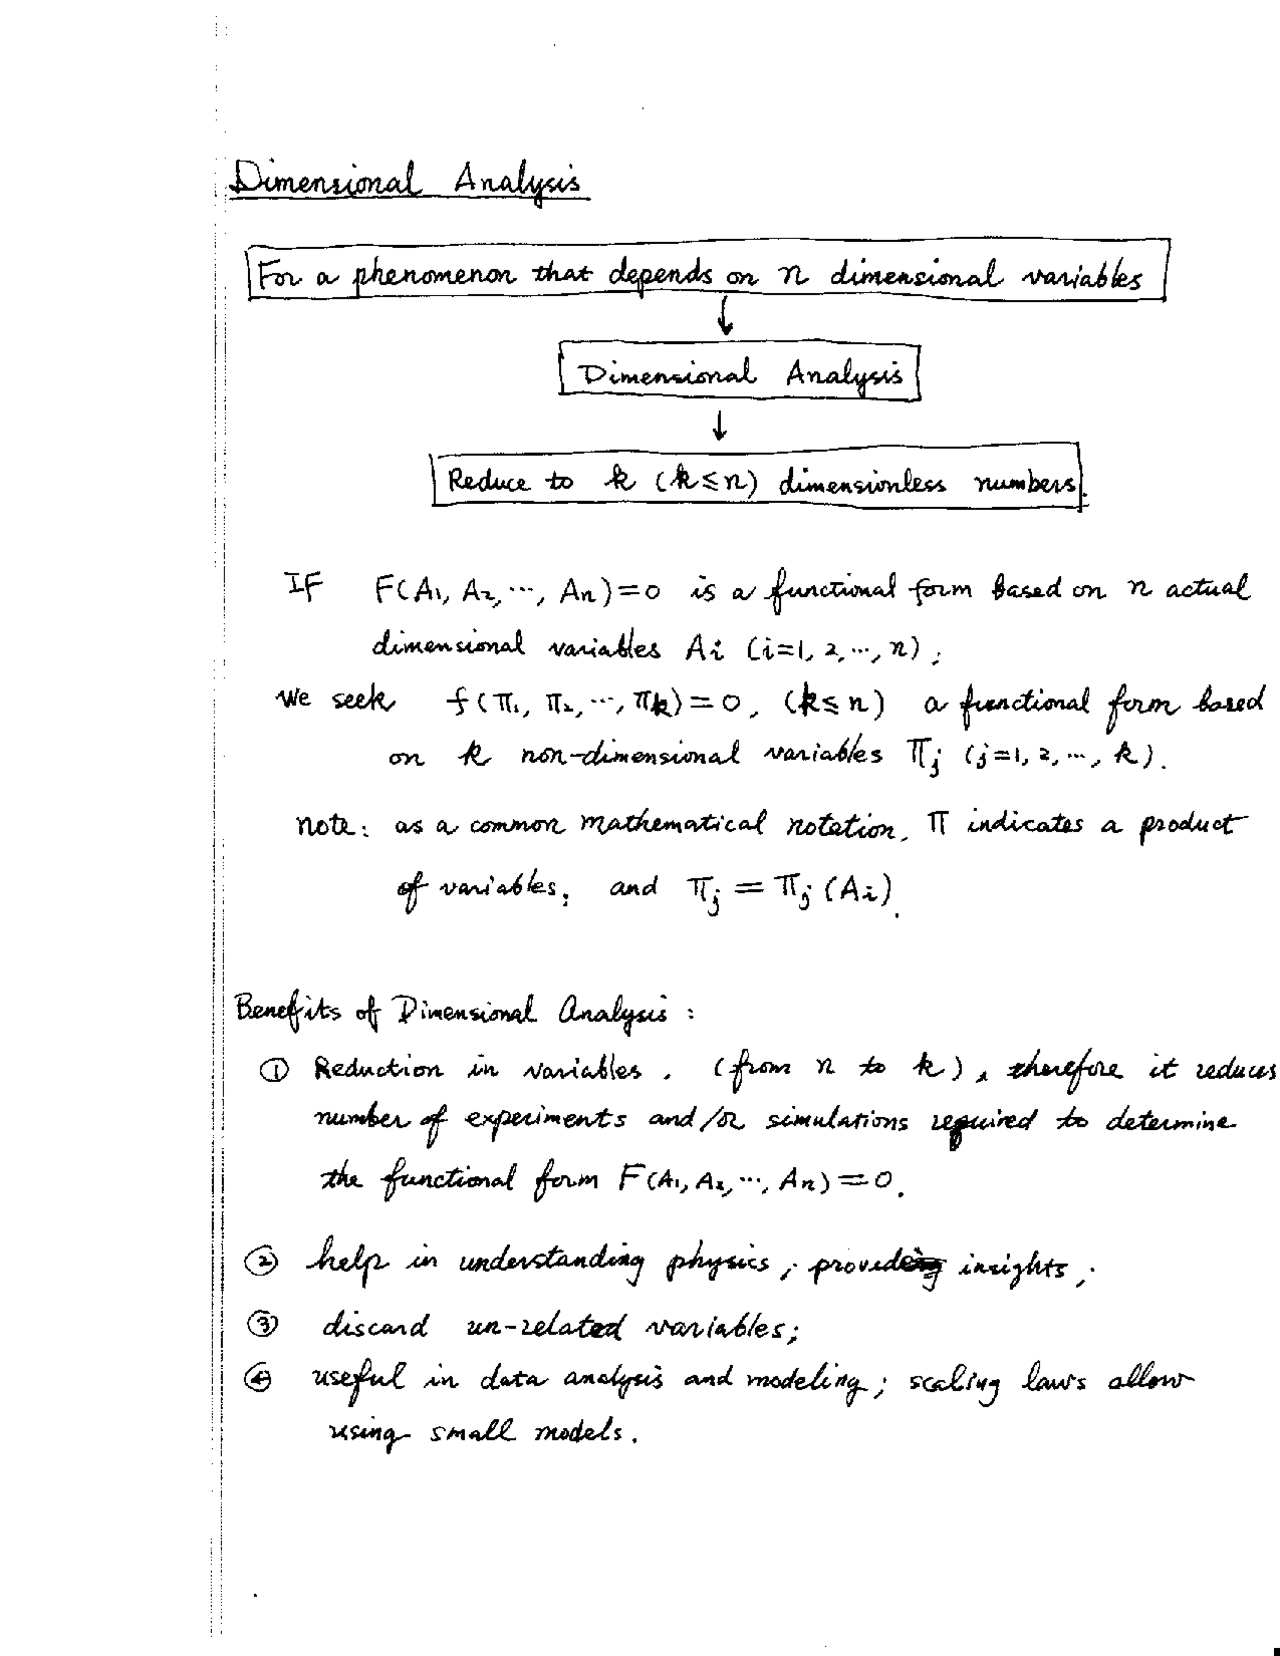 Dimensional Analysis
For a phenomenon that depends on n dimensional variables
↓
Dimensional Analysis
↓
Reduce to k (k≤n) dimensionless numbers.
IF F(A₁, A₂, ⋯, Aₙ)=0 is a functional form based on n actual
dimensional variables Aᵢ (i=1, 2, ⋯, n);
we seek f(π₁, π₂, ⋯, πₖ)=0, (k≤n) a functional form based
on k non-dimensional variables πⱼ (j=1, 2, ⋯, k).
note: as a common mathematical notation, π indicates a product
of variables; and πⱼ = πⱼ(Aᵢ).
Benefits of Dimensional Analysis:
① Reduction in variables. (from n to k), therefore it reduces
number of experiments and/or simulations required to determine
the functional form F(A₁, A₂, ⋯, Aₙ)=0.
② help in understanding physics; provide insights;
③ discard un-related variables;
④ useful in data analysis and modeling; scaling laws allow
using small models.